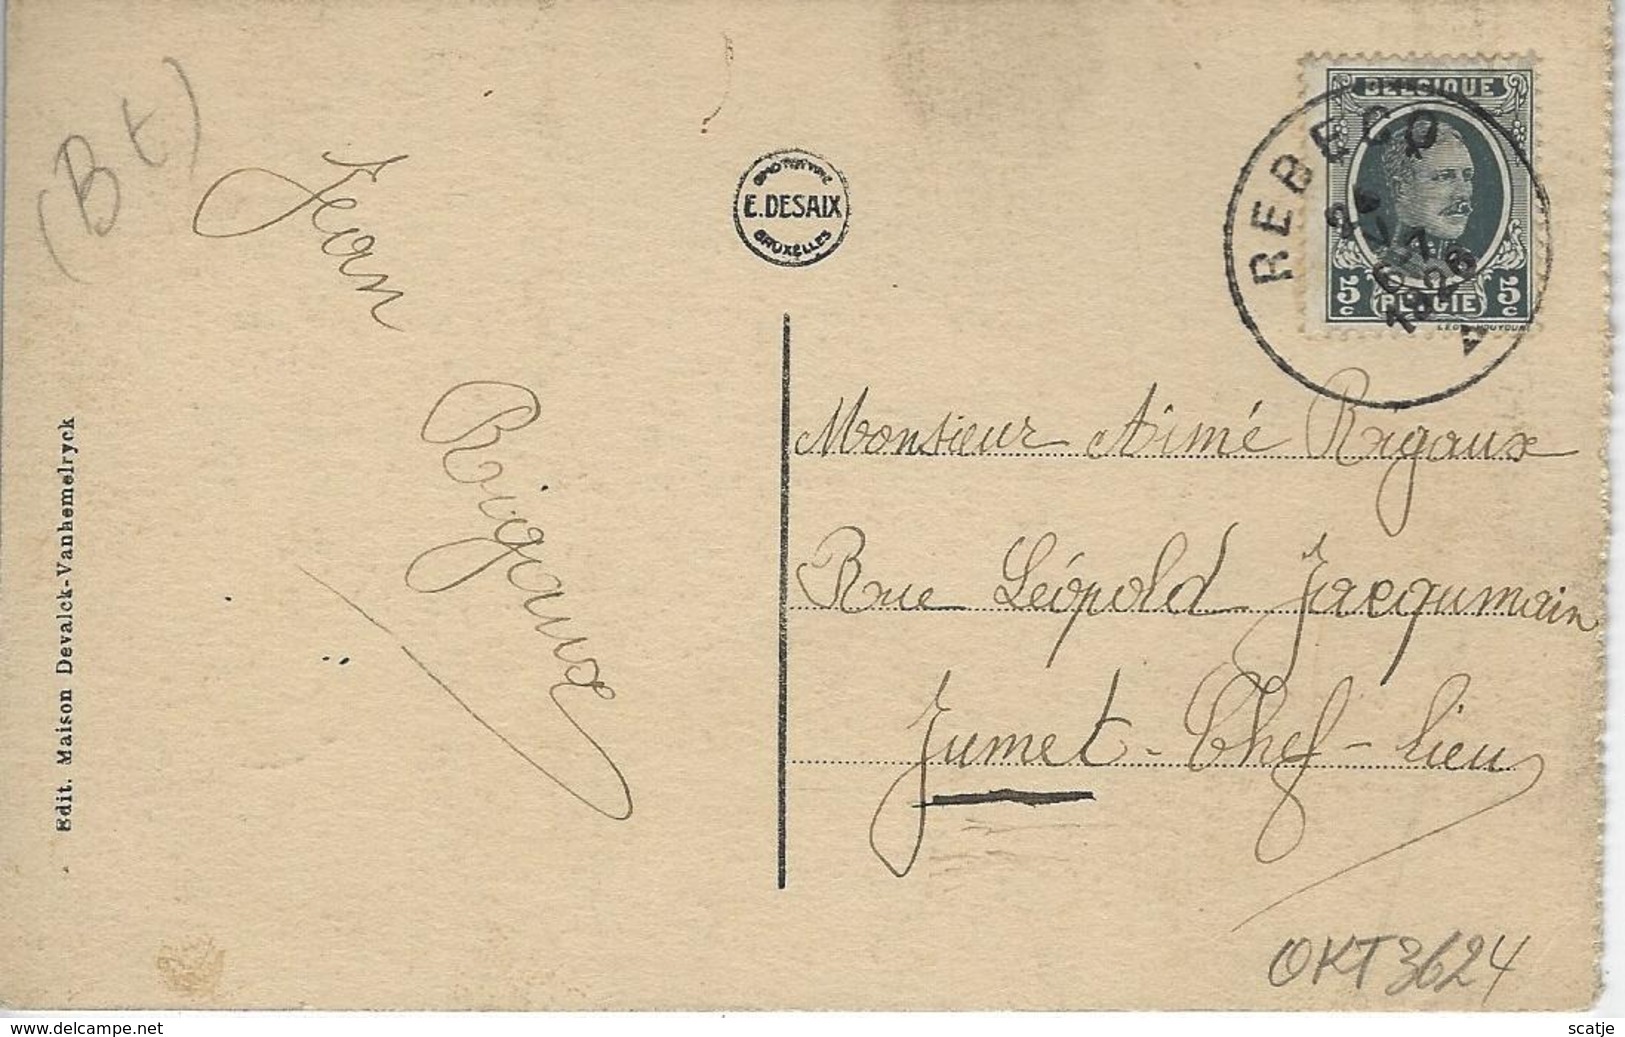 (Bt)
Jean
Rigaux
Edit. Maison Devalck-Vanhemelryck
E. DESAIX
BRUXELLES
REBECQ
1926
BELGIQUE
5 c
BELGIE
5 c
Monsieur Aimé Rigaux
Rue Léopold Jacqumain
Jumet - Chef - lieu
OKT3624
www.delcampe.net
scatje